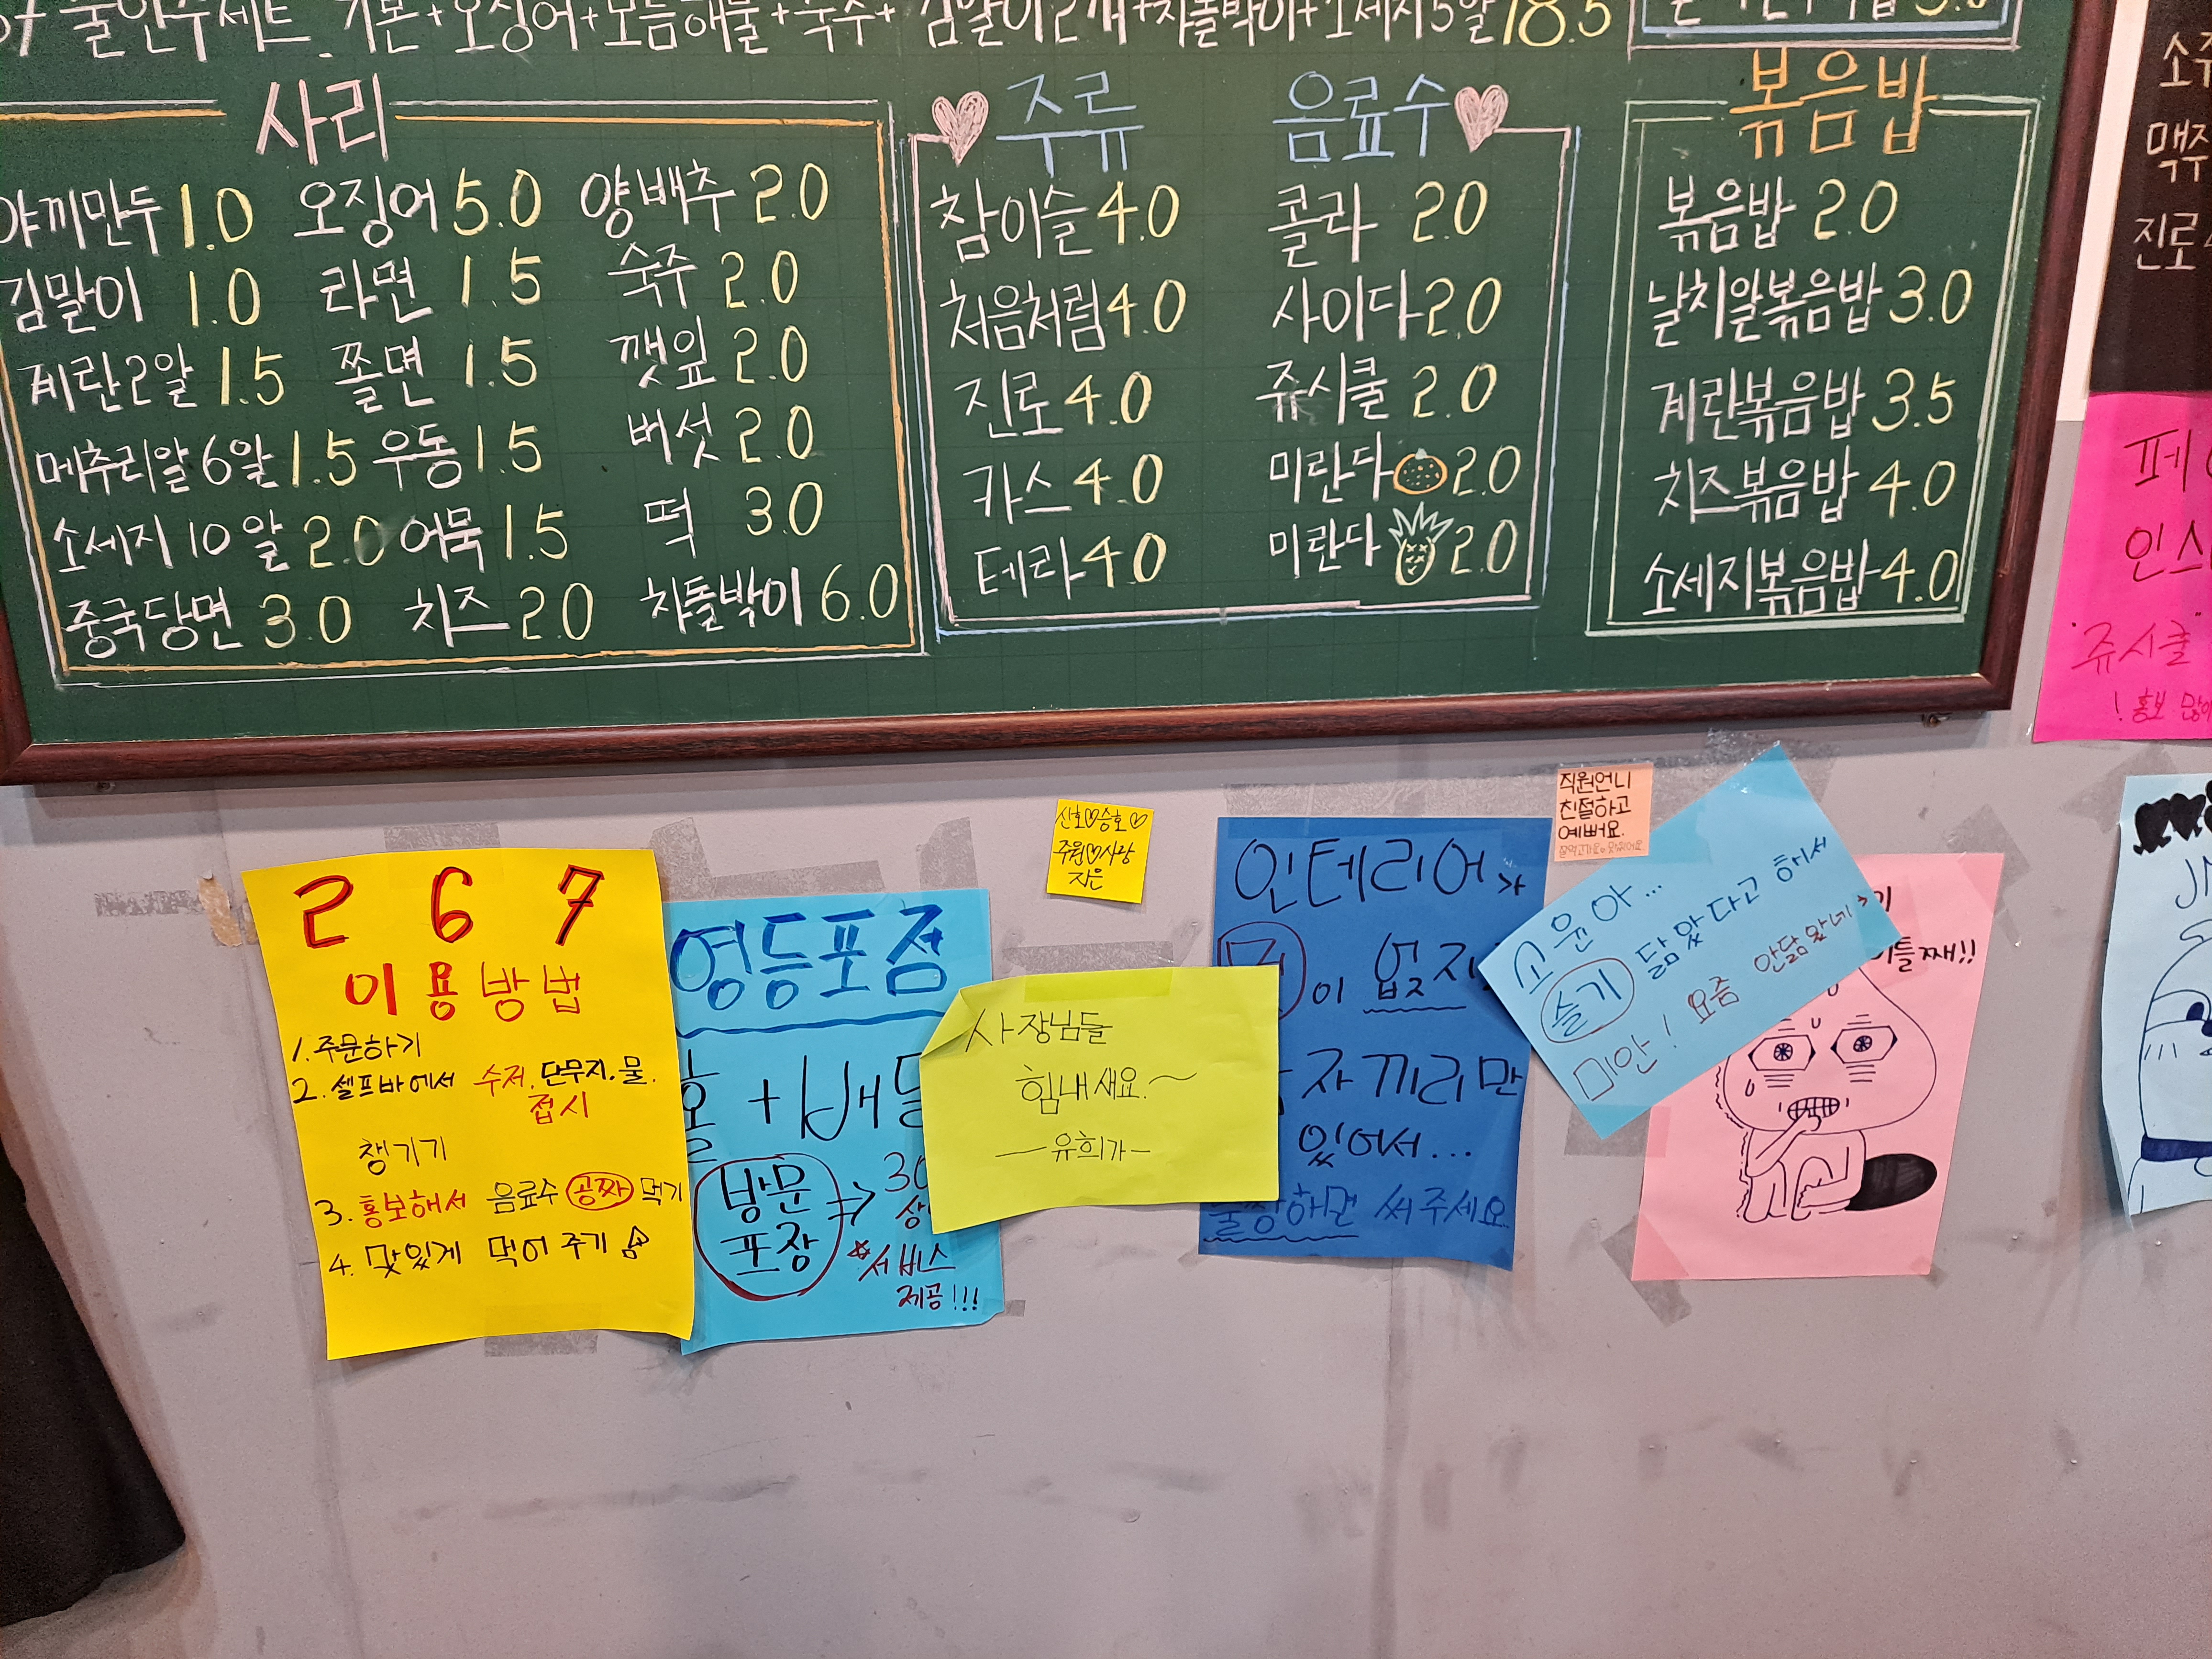 불한수세트 기본+오징어+모듬해물+숙주+김말이2개+차돌박이+소세지5알 18.5
사리
야끼만두 1.0 오징어 5.0 양배추 2.0
김말이 1.0 라면 1.5 숙주 2.0
계란2알 1.5 쫄면 1.5 깻잎 2.0
메추리알 6알 1.5 우동 1.5 버섯 2.0
소세지 10알 2.0 어묵 1.5 떡 3.0
중국당면 3.0 치즈 2.0 차돌박이 6.0
주류 음료수
참이슬 4.0 콜라 2.0
처음처럼 4.0 사이다 2.0
진로 4.0 쥬시쿨 2.0
카스 4.0 미란다 2.0
테라 4.0 미란다 2.0
볶음밥
볶음밥 2.0
날치알볶음밥 3.0
계란볶음밥 3.5
치즈볶음밥 4.0
소세지볶음밥 4.0
진로
페
인스
"쥬시쿨"
! 홍보 많이
2 6 7
이용방법
1. 주문하기
2. 셀프바에서 수저. 단무지. 물.
접시
챙기기
3. 홍보해서 음료수 공짜 먹기
4. 맛있게 먹어주기
영등포점
홀 + 배달
방문
포장
⇒ 30
서비스
제공!!!
신호♡승호♡
주원♡사랑
지은
사장님들
힘내세요.~
—유희가—
인테리어가
이 없지
자끼리만
있어서...
불쌍해면 써주세요
직원언니
친절하고
예뻐요.
고윤아...
슬기 닮았다고 해서
미안! 요즘 안닮았네
이틀째!!